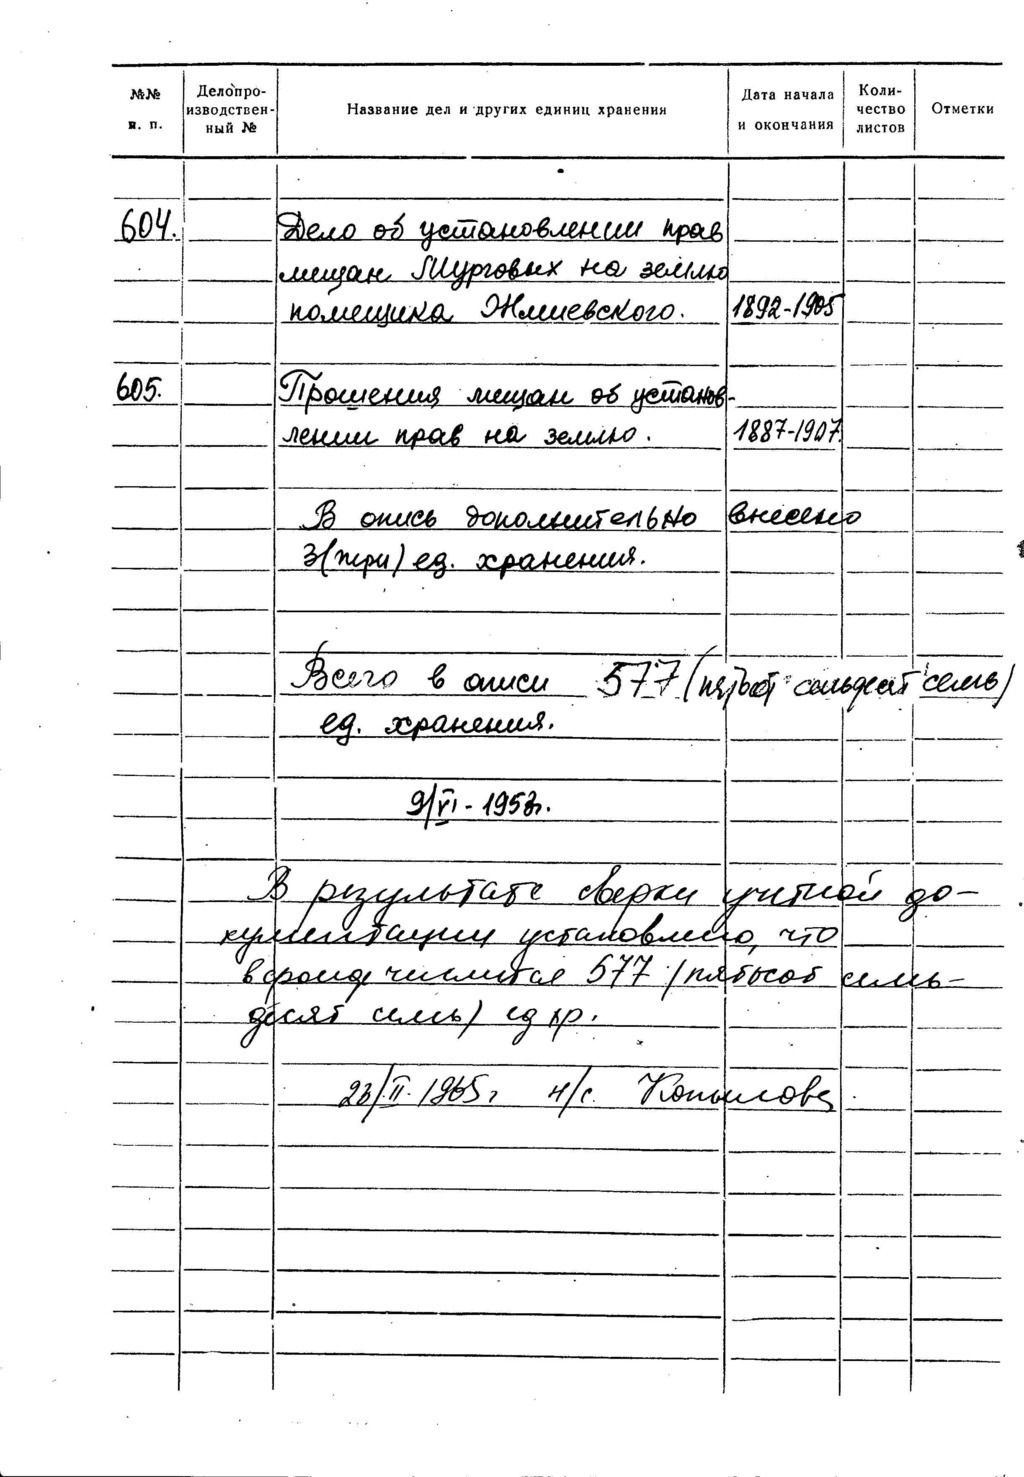 №№ п. п.
Делопроизводственный №
Название дел и других единиц хранения
Дата начала и окончания
Количество листов
Отметки
604. Дело об установлении прав
мещан Мурговых на землю
помещика Жмиевского. 1892-1905
605. Прошения мещан об установ-
лении прав на землю. 1887-1907.
В опись дополнительно внесено
3(три) ед. хранения.
Всего в описи 577 (пятьсот семьдесят семь)
ед. хранения.
9/VI-1953г.
В результате сверки учетной до-
кументации установлено, что
в фонде числится 577 (пятьсот семь-
десят семь) ед хр.
23/II-1965г н/с. Копылова